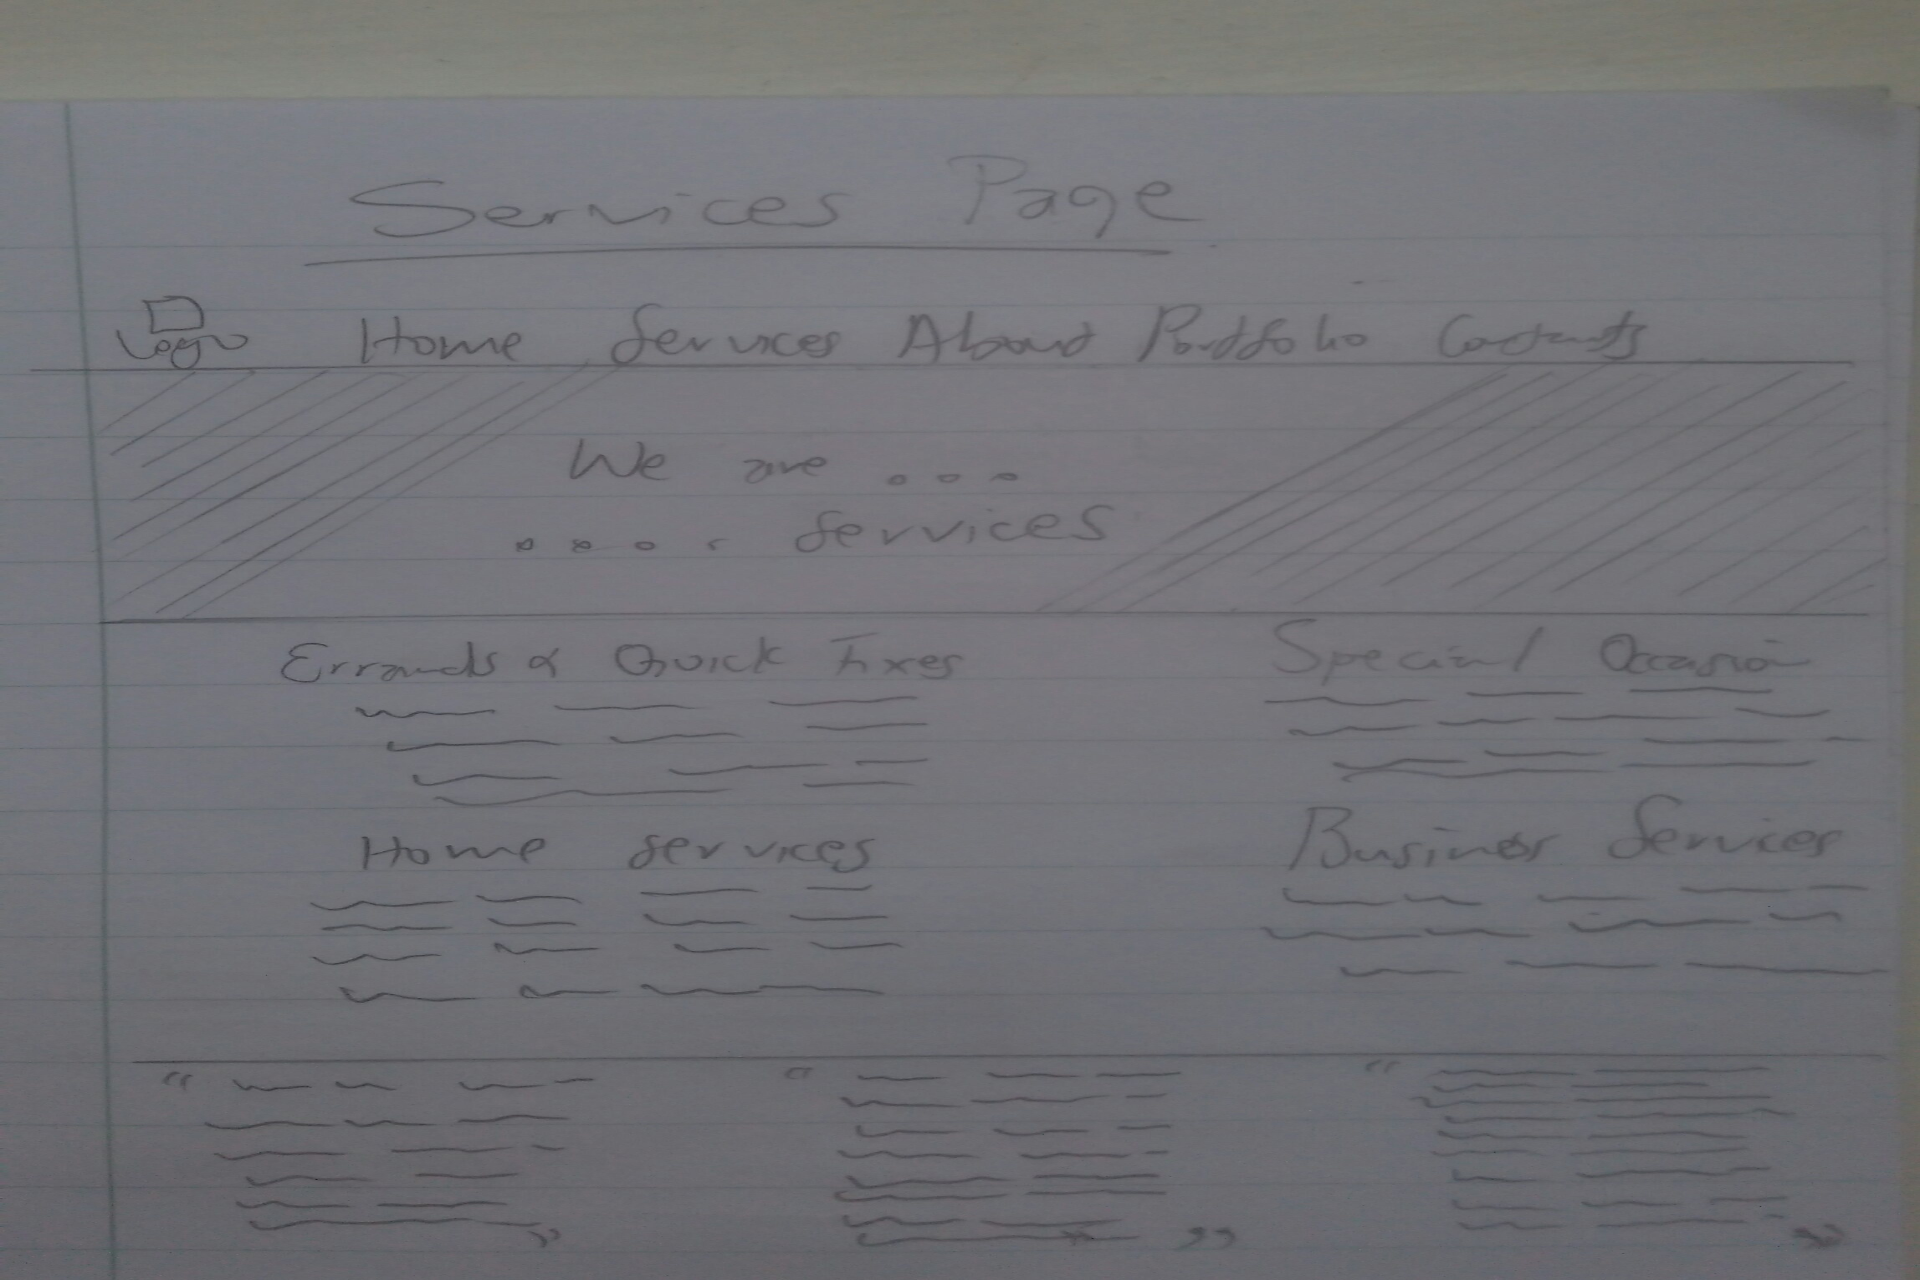 Services Page
Logo Home Services About Portfolio Contacts
We are ...
.... services
Errands & Quick Fixes
Special Occasion
Home services
Business Services